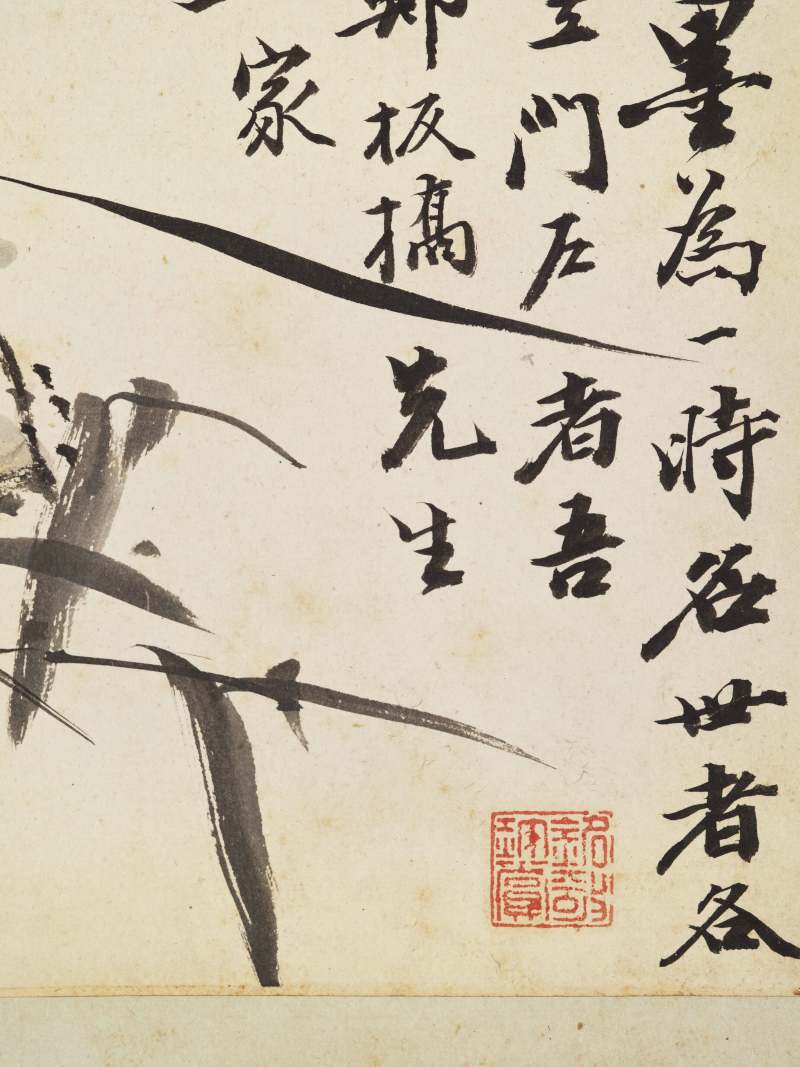 墨為一時名世者各
立門戶者吾
鄭板橋先生
家